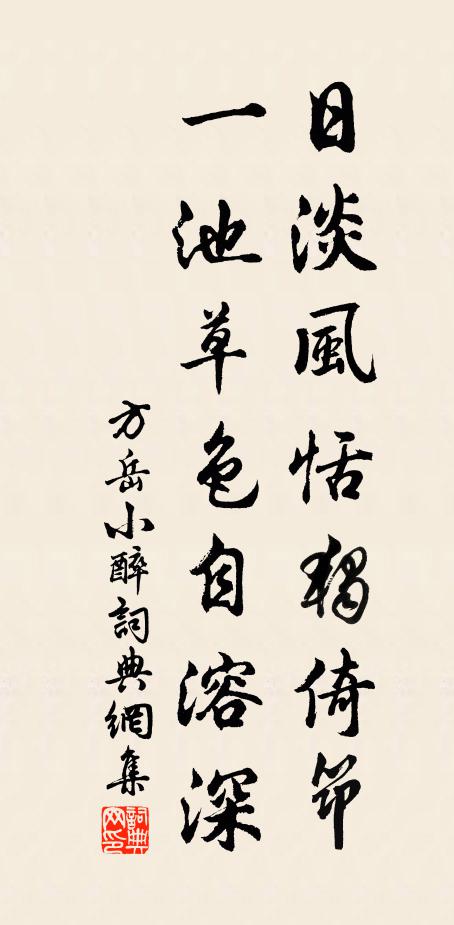 日淡風恬獨倚筇
一池草色自溶深
方岳小醉詞典網集
詞典網印